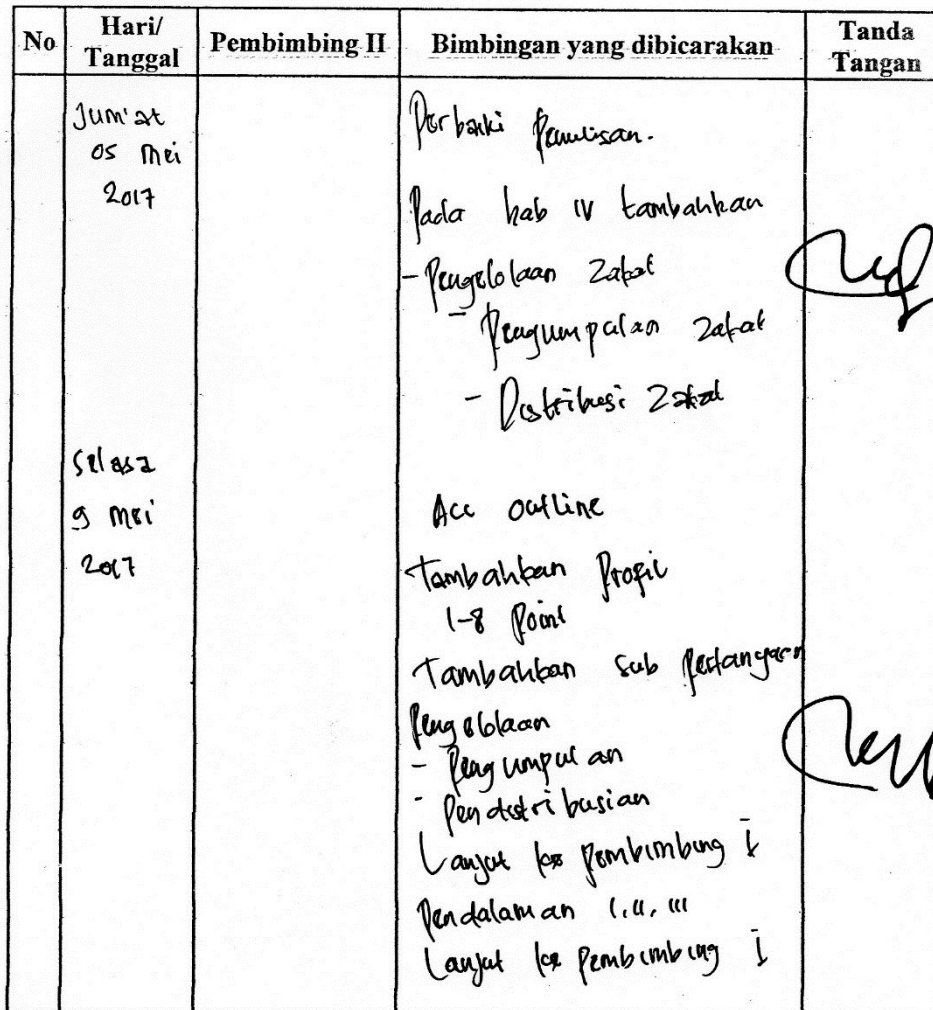 No Hari/ Tanggal Pembimbing II Bimbingan yang dibicarakan Tanda Tangan
Jum'at
05 Mei
2017
Perbaiki Penulisan.
Pada bab IV tambahkan
- Pengelolaan Zakat
- Pengumpulan Zakat
- Distribusi Zakat
Selasa
9 Mei
2017
Acc outline
Tambahkan Profil
1-8 Point
Tambahkan sub pertanyaan
Pengelolaan
- Pengumpulan
- Pendistribusian
Lanjut ke Pembimbing I
Pendalaman I, II, III
Lanjut ke Pembimbing I